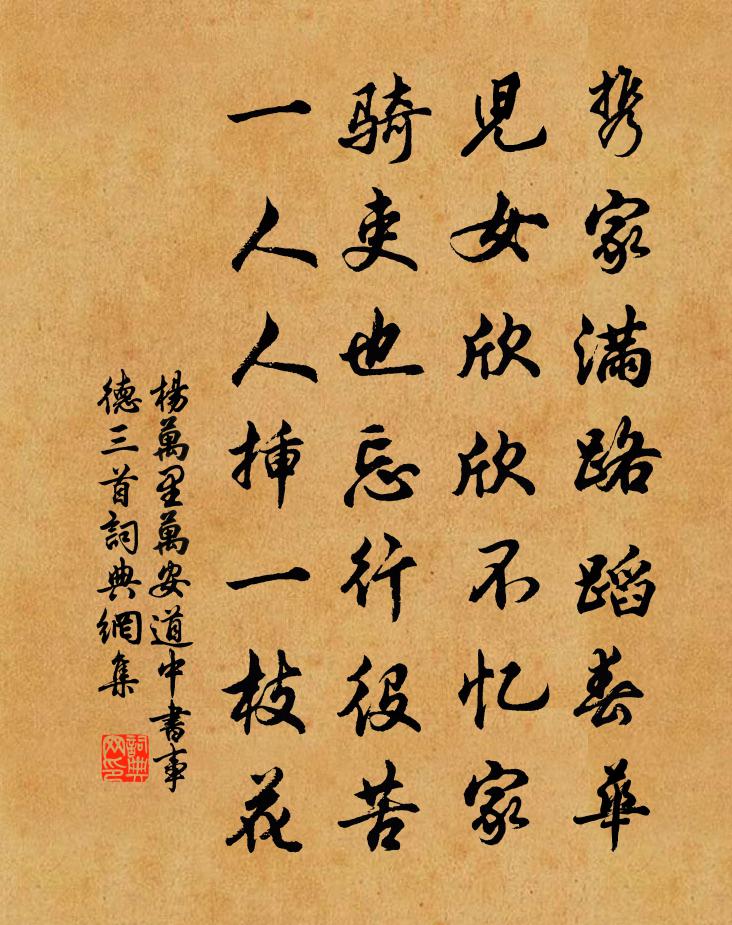 携家滿路蹈春華
兒女欣欣不忆家
騎吏也忘行役苦
一人人挿一枝花
楊萬里萬安道中書事
德三首詞典網集
詞典
网印